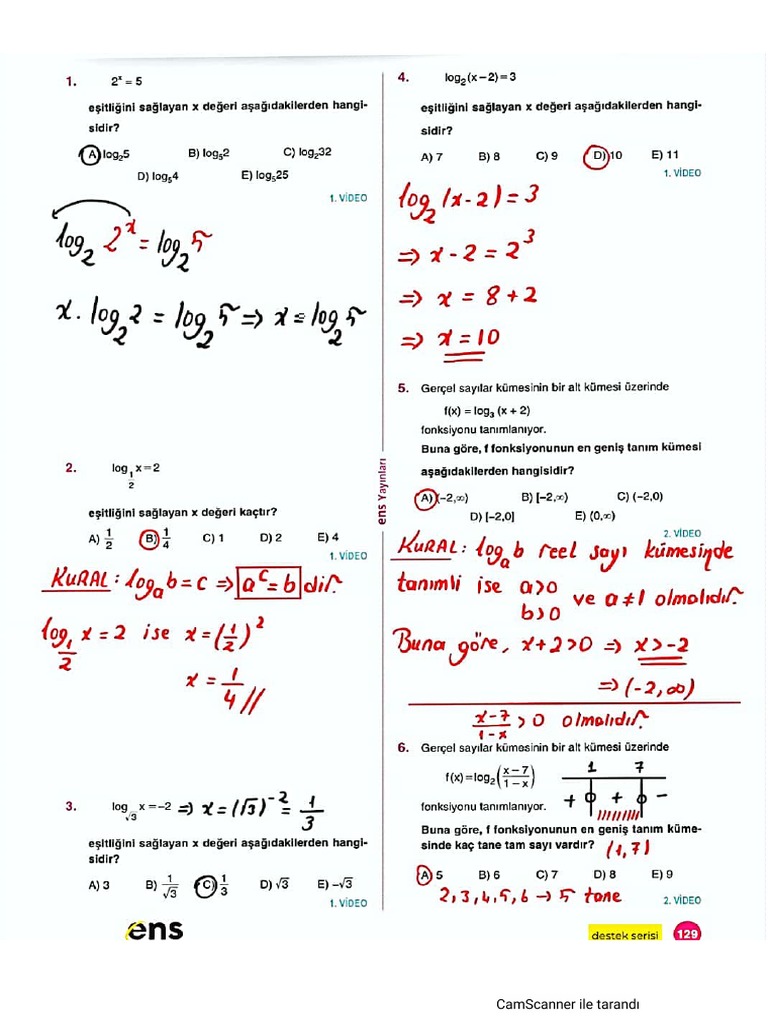 1. 2ˣ = 5
eşitliğini sağlayan x değeri aşağıdakilerden hangi-
sidir?
A) log₂5 B) log₅2 C) log₂32
D) log₅4 E) log₅25
1. VİDEO
log₂ 2ˣ = log₂ 5
x . log₂ 2 = log₂ 5 ⇒ x = log₂ 5
2. log_(1/2) x = 2
eşitliğini sağlayan x değeri kaçtır?
A) 1/2 B) 1/4 C) 1 D) 2 E) 4
1. VİDEO
KURAL : logₐ b = c ⇒ aᶜ = b dir.
log_(1/2) x = 2 ise x = (1/2)²
x = 1/4 //
3. log_√3 x = –2 ⇒ x = (√3)⁻² = 1/3
eşitliğini sağlayan x değeri aşağıdakilerden hangi-
sidir?
A) 3 B) 1/√3 C) 1/3 D) √3 E) –√3
1. VİDEO
ens
ens Yayınları
4. log₂(x – 2) = 3
eşitliğini sağlayan x değeri aşağıdakilerden hangi-
sidir?
A) 7 B) 8 C) 9 D) 10 E) 11
1. VİDEO
log₂ (x - 2) = 3
⇒ x - 2 = 2³
⇒ x = 8 + 2
⇒ x = 10
5. Gerçel sayılar kümesinin bir alt kümesi üzerinde
f(x) = log₃ (x + 2)
fonksiyonu tanımlanıyor.
Buna göre, f fonksiyonunun en geniş tanım kümesi
aşağıdakilerden hangisidir?
A) (–2,∞) B) [–2,∞) C) (–2,0)
D) [–2,0] E) (0,∞)
2. VİDEO
KURAL : logₐ b reel sayı kümesinde
tanımli ise a>0
b>0 ve a≠1 olmalıdır.
Buna göre, x+2>0 ⇒ x>-2
⇒ (-2, ∞)
(x-7)/(1-x) > 0 olmalıdır.
6. Gerçel sayılar kümesinin bir alt kümesi üzerinde
f(x) = log₂((x – 7)/(1 – x))
1 7
+ + –
fonksiyonu tanımlanıyor.
Buna göre, f fonksiyonunun en geniş tanım küme-
sinde kaç tane tam sayı vardır? (1,7)
A) 5 B) 6 C) 7 D) 8 E) 9
2,3,4,5,6 → 5 tane
2. VİDEO
destek serisi 129
CamScanner ile tarandı